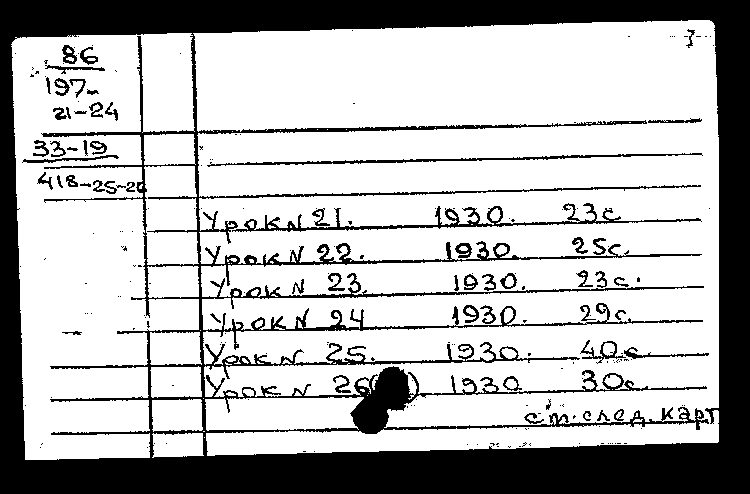 3
86
197-
21-24
33-19
418-25-26
Урок N 21. 1930. 23с
Урок N 22. 1930. 25с.
Урок N 23. 1930. 23с.
Урок N 24 1930. 29с.
Урок N 25. 1930. 40с.
Урок N 26 1930. 30с.
см. след. карт